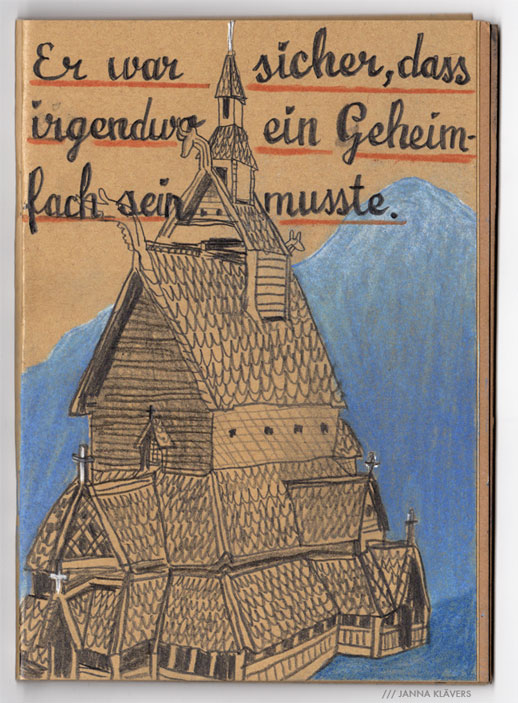 Er war sicher, dass
irgendwo ein Geheim-
fach sein musste.
/// JANNA KLÄVERS